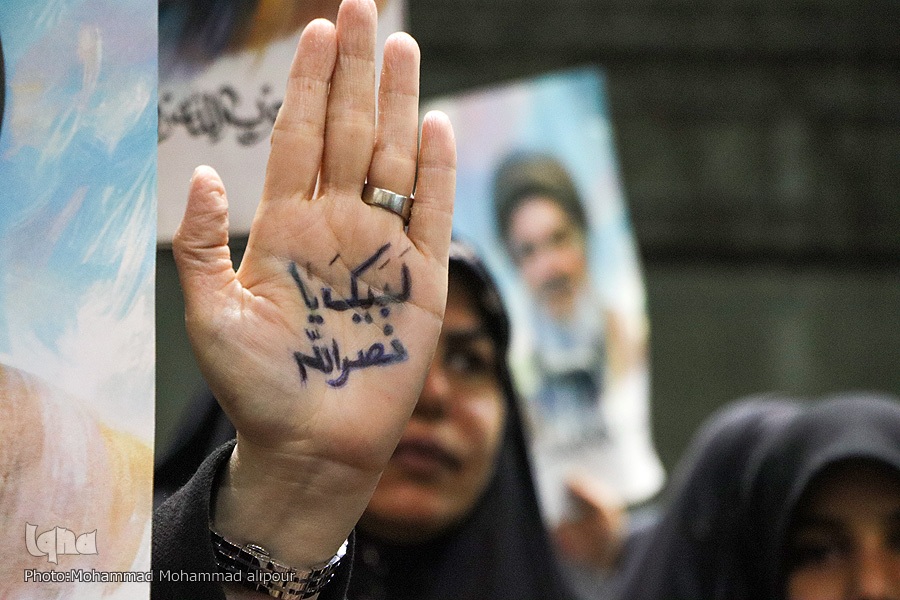 لَبَیکَ یا
نصرالله
Iqna
Photo:Mohammad Mohammad alipour